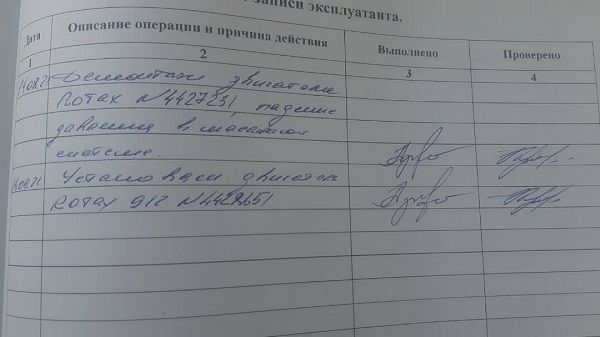 записи эксплуатанта.
Дата Описание операции и причина действия Выполнено Проверено
1 2 3 4
Демонтаж двигателя
Rotax N4427231, падение
давления в масляной
системе.
Установлен двигатель
Rotax 912 N4428651